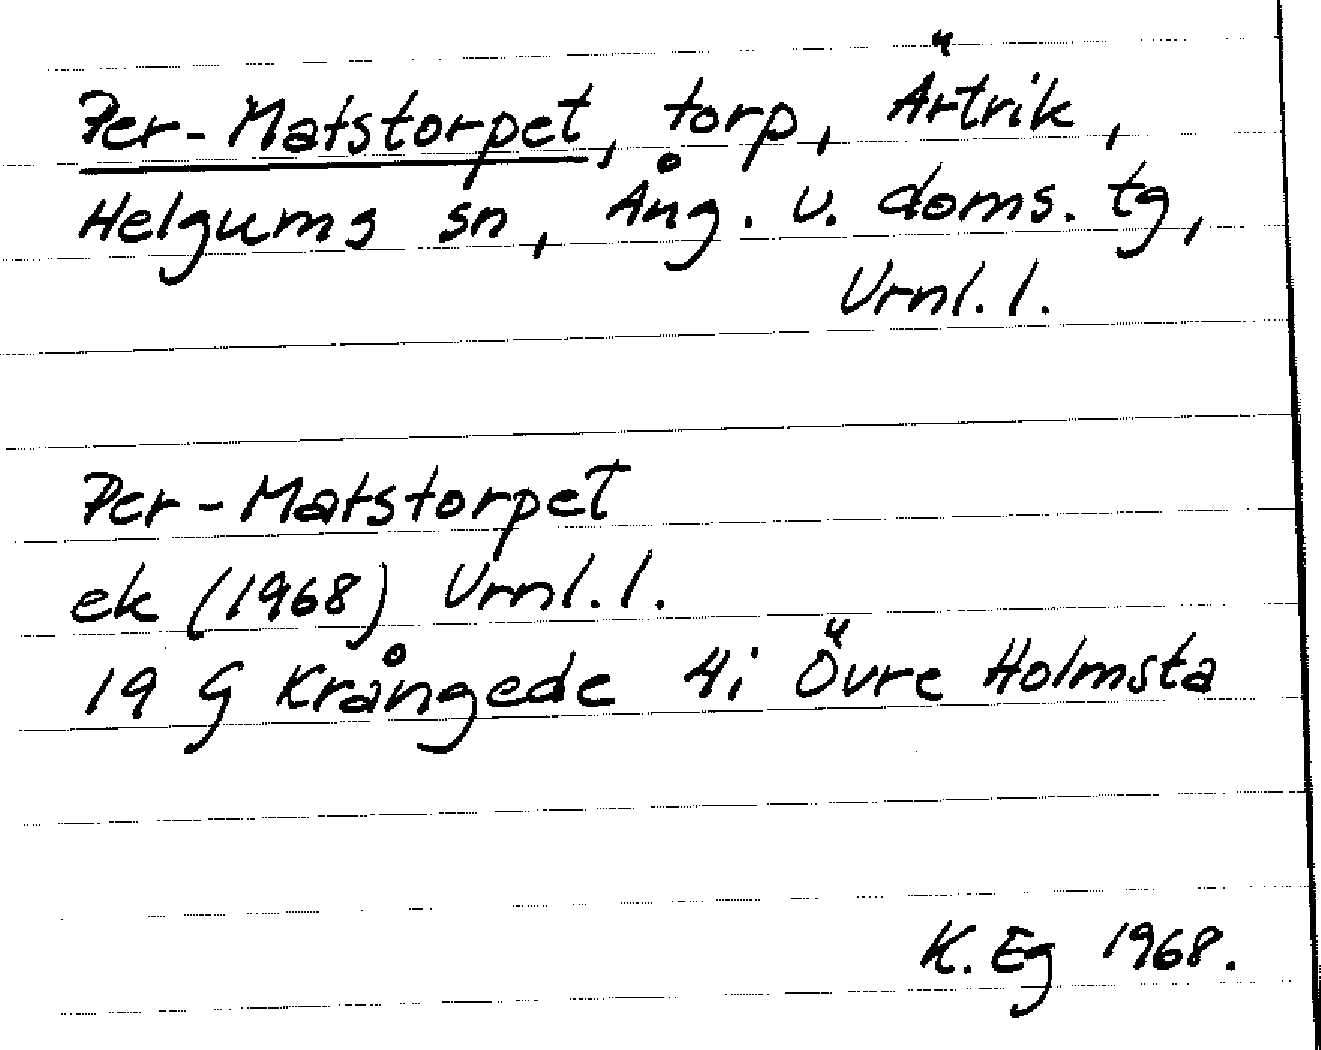 Per-Matstorpet, torp, Ärtrik,
Helgums sn, Ång. v. doms. tg,
Vrnl. l.
Per-Matstorpet
ek (1968) Vrnl. l.
19 G Krångede 4i Övre Holmsta
K. Eg 1968.